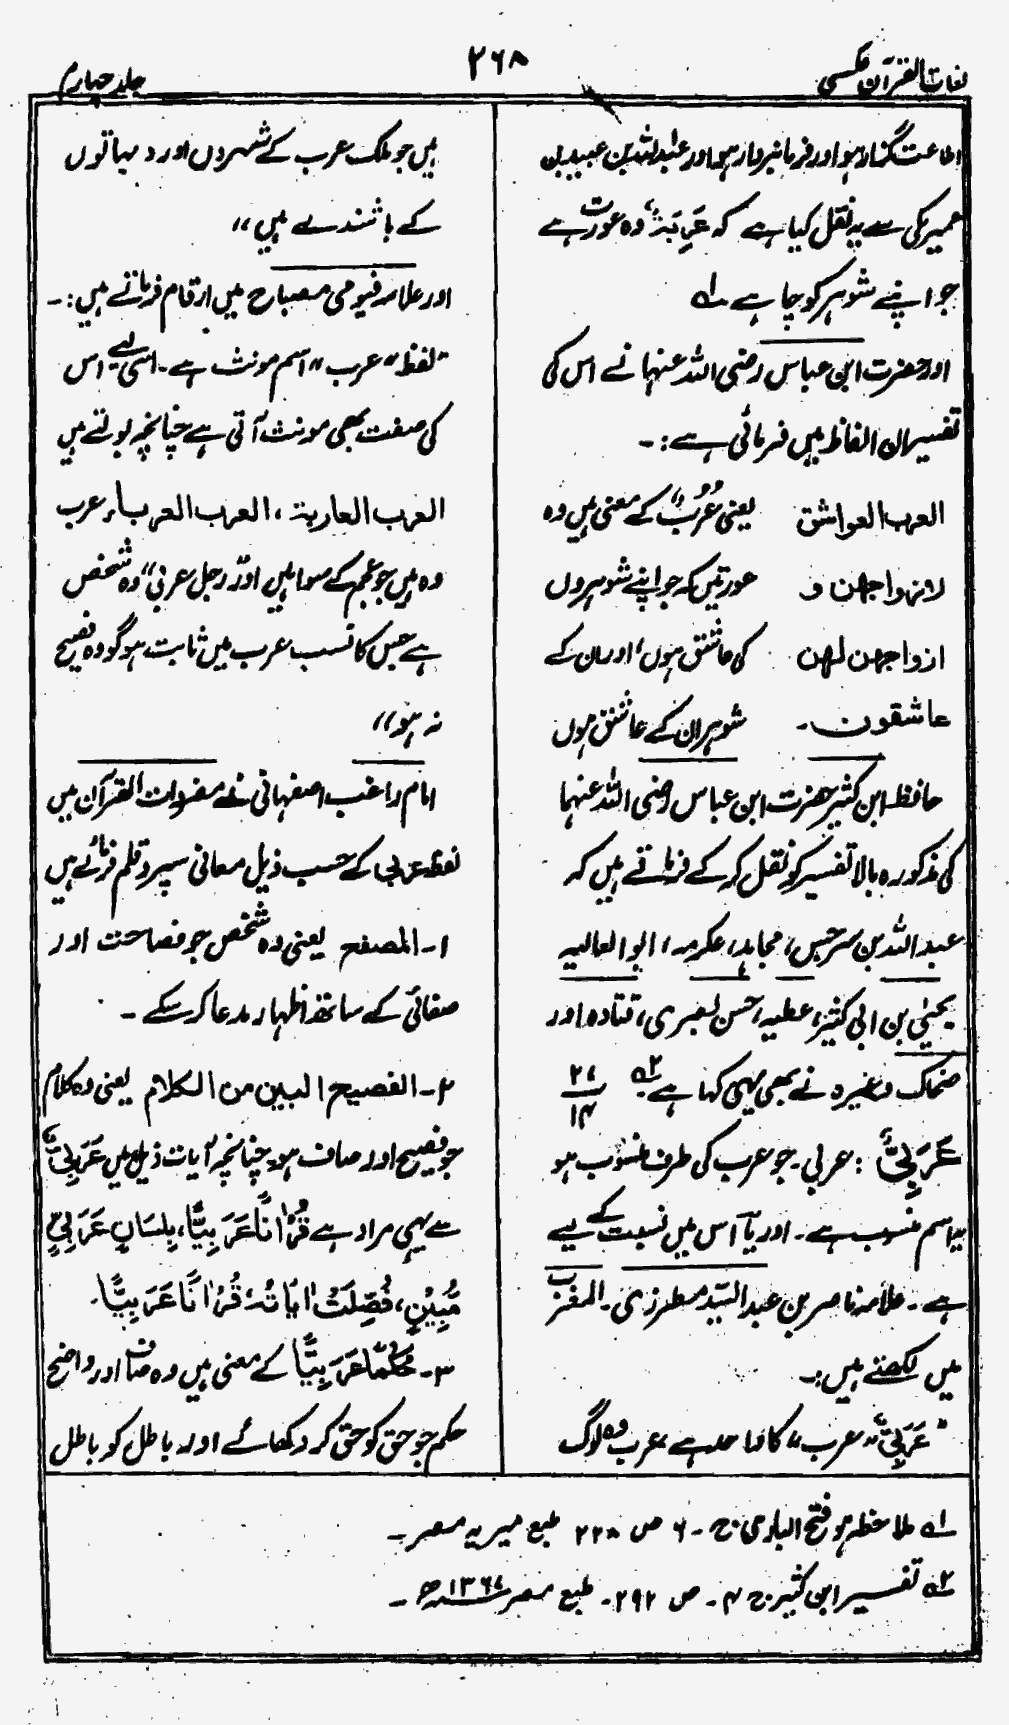 لغات القرآن عکسی
۲۶۸
جلد چہارم
اطاعت گذار ہو اور فرمانبردار ہو اور عبداللہ بن عبید بن
عمیر مکی سے یہ نقل کیا ہے کہ عَرِبَۃٌ، وہ عورت ہے
جو اپنے شوہر کو چاہے لہ۱
اور حضرت ابن عباس رضی اللہ عنہما نے اس کی
تفسیر ان الفاظ میں فرمائی ہے:۔
العرب العواشق یعنی عُرُبٌ، کے معنی ہیں وہ
لازواجھن و عورتیں کہ جو اپنے شوہروں
ازواجھن لھن کی عاشق ہوں، اور ان کے
عاشقون۔ شوہر ان کے عاشق ہوں
حافظ ابن کثیر حضرت ابن عباس رضی اللہ عنہما
کی مذکورہ بالا تفسیر کو نقل کر کے فرماتے ہیں کہ
عبداللہ بن سرجس، مجاہد، عکرمہ، ابو العالیہ
یحیٰی بن ابی کثیر، عطیہ، حسن بصری، قتادہ اور
ضحاک وغیرہ نے بھی یہی کہا ہے۔ لہ۲ ۲۷/۱۴
عَرَبِیٌّ : عربی۔ جو عرب کی طرف منسوب ہو
یہ اسم منسوب ہے۔ اور یآ اس میں نسبت کے لیے
ہے۔ علامہ ناصر بن عبد السید مطرزی۔ المغرب
میں لکھتے ہیں:۔
"عَرَبِیٌّ" "عرب" کا واحد ہے، عرب وہ لوگ
ہیں جو ملک عرب کے شہروں اور دیہاتوں
کے باشندے ہیں"
اور علامہ فیومی مصباح میں ارقام فرماتے ہیں:۔
"لفظ "عرب" اسم مونث ہے۔ اسی لیے اس
کی صفت بھی مونث آتی ہے چنانچہ بولتے ہیں
العرب العاربۃ، العرب العرباء، عرب
وہ ہیں جو عجم کے سوا ہیں اور "رجل عربی" وہ شخص
ہے جس کا نسب عرب میں ثابت ہو گو وہ فصیح
نہ ہو"
امام راغب اصفہانی نے مفردات القرآن میں
لفظ عربی کے حسب ذیل معانی سپرد قلم فرمائے ہیں
۱۔ المفصح یعنی وہ شخص جو فصاحت اور
صفائی کے ساتھ اظہار مدعا کر سکے۔
۲۔ الفصیح البین من الکلام یعنی وہ کلام
جو فصیح اور صاف ہو۔ چنانچہ آیات ذیل میں عَرَبِیٌّ
سے یہی مراد ہے قُرْاٰنًا عَرَبِیًّا، بِلِسَانٍ عَرَبِیٍّ
مُّبِیْنٍ، فُصِّلَتْ اٰیَاتُہٗ قُرْاٰنًا عَرَبِیًّا۔
۳۔ حُکْمًا عَرَبِیًّا کے معنی ہیں وہ صاف اور واضح
حکم جو حق کو حق کر دکھائے اور باطل کو باطل
لہ۱ ملاحظہ ہو فتح الباری ج۔ ۶ ص ۲۲۸ طبع میریہ مصر۔
لہ۲ تفسیر ابن کثیر ج ۴۔ ص ۲۹۲۔ طبع مصر سنہ ۱۳۶۷ھ۔